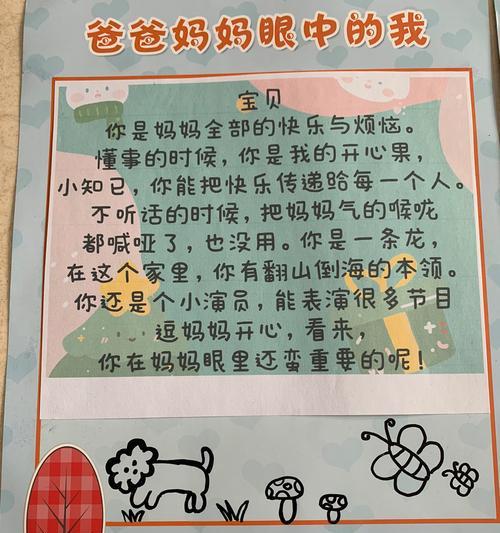 爸爸妈妈眼中的我
宝贝
你是妈妈全部的快乐与烦恼。
懂事的时候，你是我的开心果，
小知己，你能把快乐传递给每一个人。
不听话的时候，把妈妈气的喉咙
都喊哑了，也没用。你是一条龙，
在这个家里，你有翻山倒海的本领。
你还是个小演员，能表演很多节目
逗妈妈开心，看来，
你在妈妈眼里还蛮重要的呢！